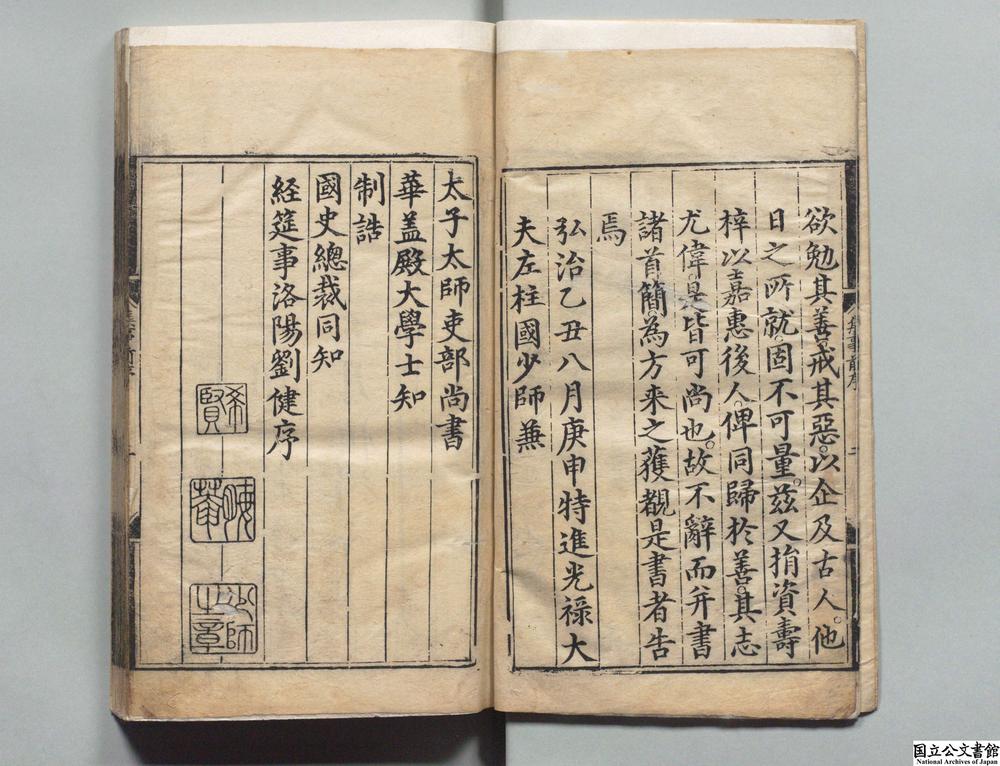 欲勉其善戒其惡。以企及古人。他
日之所就。固不可量。玆又捐資壽
梓以嘉惠後人。俾同歸於善。其志
尤偉。是皆可尚也。故不辭而并書
諸首簡。為方來之獲覩是書者告
焉
弘治乙丑八月庚申特進光祿大
夫左柱國少師兼
太子太師吏部尚書
華盖殿大學士知
制誥
國史總裁同知
経筵事洛陽劉健序
希賢
晦菴
少師之章
国立公文書館
National Archives of Japan